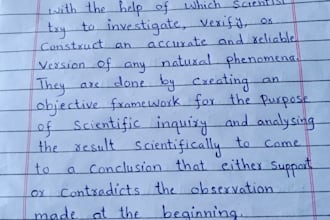 with the help of which Scientist
try to investigate, verify, or
Construct an accurate and reliable
version of any natural phenomena.
They are done by creating an
objective framework for the purpose
of Scientific inquiry and analysing
the result Scientifically to come
to a conclusion that either Support
or Contradicts the observation
made at the beginning.